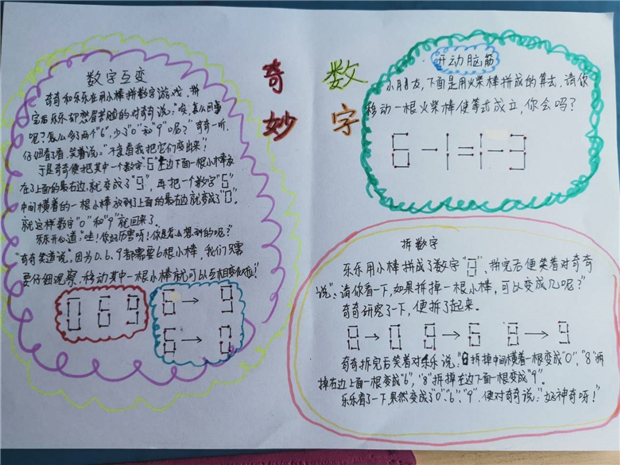 数字互变
奇奇和乐乐在用小棒拼数字游戏,拼
完后乐乐却愁眉苦脸的对奇奇说:"哎,怎么回事
呢?怎么多了两个"6",少了"0"和"9"呢?"奇奇一听,
仔细看了看,笑着说:"不急看我把它们变出来!"
于是奇奇便把其中一个数字"6"左边下面一根小棒放
在了上面的最右边,就变成了"9",再把一个数字"6"
中间横着的一根小棒放到上面的最右边就变成了"0",
就这样数字"0"和"9"就回来了。
乐乐开心道:"哇!你好厉害呀!你是怎么想到的呢?"
奇奇笑道说:"因为0.6.9都需要6根小棒,我们只需
要仔细观察,移动其中一根小棒就可以互相变换啦!"
0 6 9
6 → 9
6 → 9
奇妙
数字
开动脑筋
小朋友,下面是用火柴棒拼成的算式,请你
移动一根火柴棒使等式成立,你会吗?
6-1=1-3
拆数字
乐乐用小棒拼成了数字"9",拼完后便笑着对奇奇
说:"请你看一下,如果拆掉一根小棒,可以变成几呢?"
奇奇研究了一下,便拆了起来。
8 → 0 8 → 6 8 → 9
奇奇拆完后笑着对乐乐说:"8拆掉中间横着一根变成"0","8"拆
掉右边上面一根变成"6","8"拆掉左边下面一根变成"9"。
乐乐看了一下果然变成了"0"、"6"、"9",便对奇奇说:"好神奇呀!"